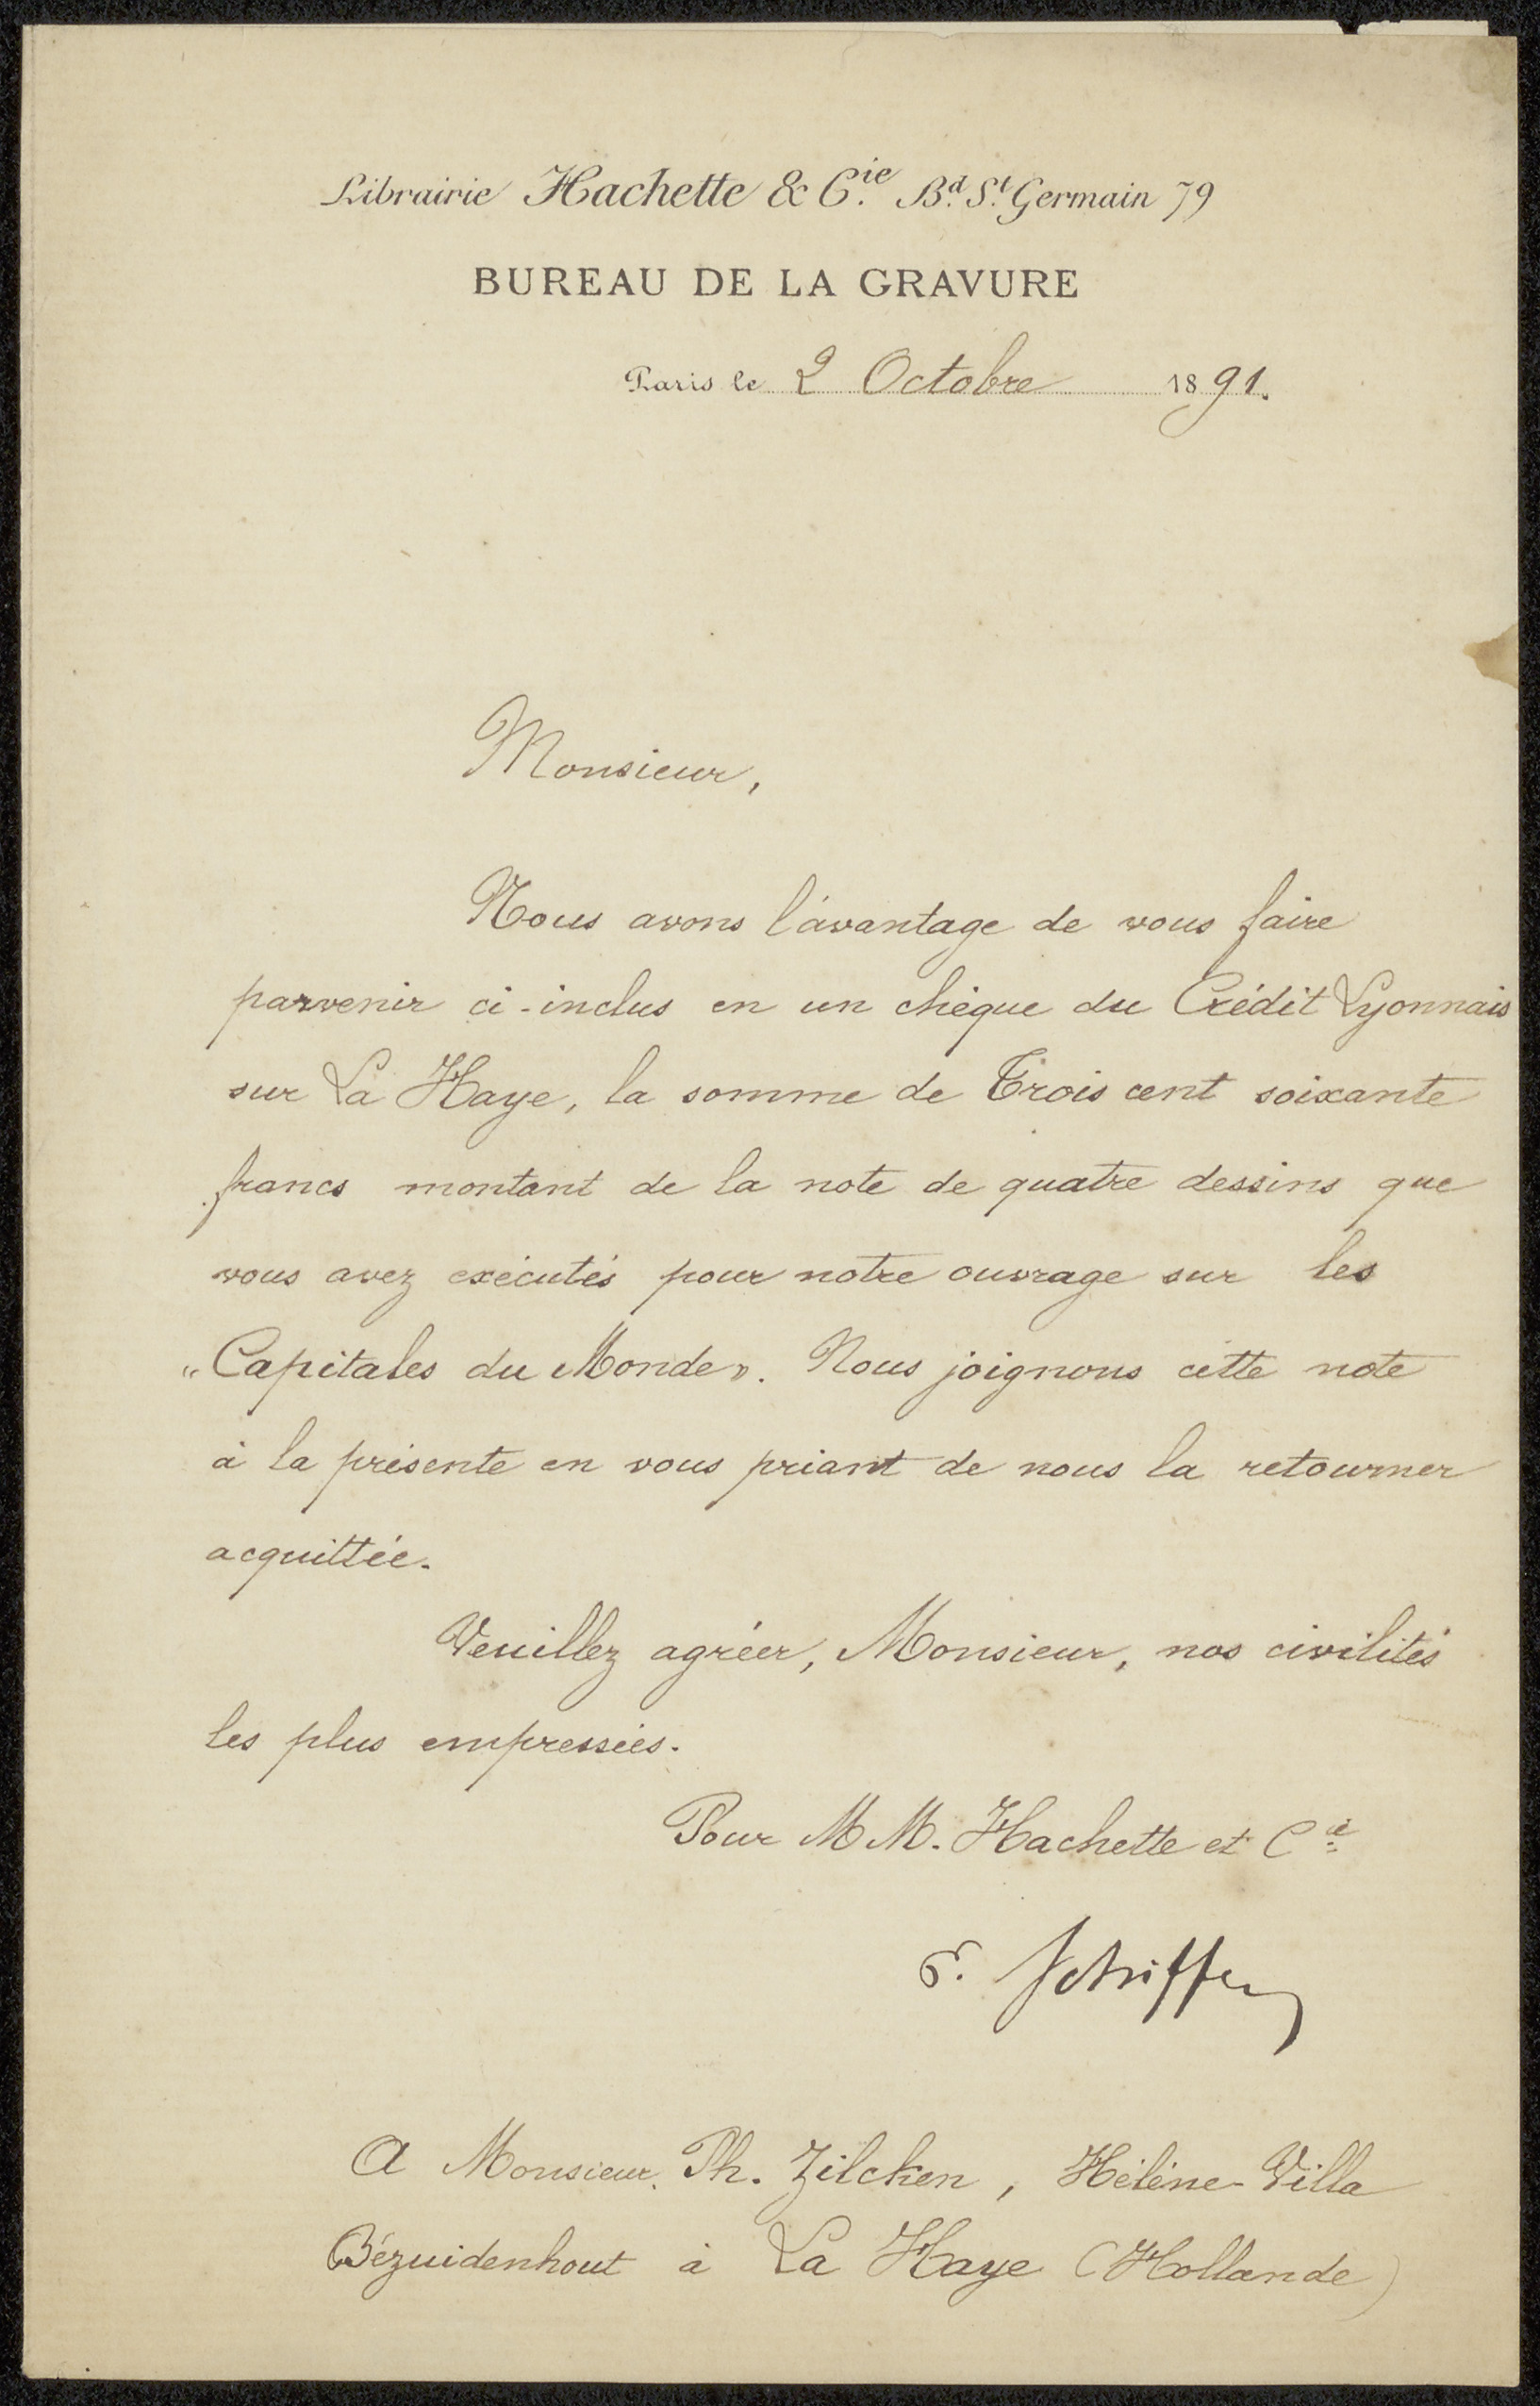 Librairie Hachette & Cie. Bd. St. Germain 79
BUREAU DE LA GRAVURE
Paris le 2 Octobre 1891.
Monsieur,
Nous avons l'avantage de vous faire
parvenir ci-inclus en un chèque du Crédit Lyonnais
sur La Haye, la somme de Trois cent soixante
francs montant de la note de quatre dessins que
vous avez exécutés pour notre ouvrage sur les
"Capitales du Monde". Nous joignons cette note
à la présente en vous priant de nous la retourner
acquittée.
Veuillez agréer, Monsieur, nos civilités
les plus empressées.
Pour MM. Hachette et Cie
A Monsieur Ph. Zilcken, Hélène-Villa
Bézuidenhout à La Haye (Hollande)